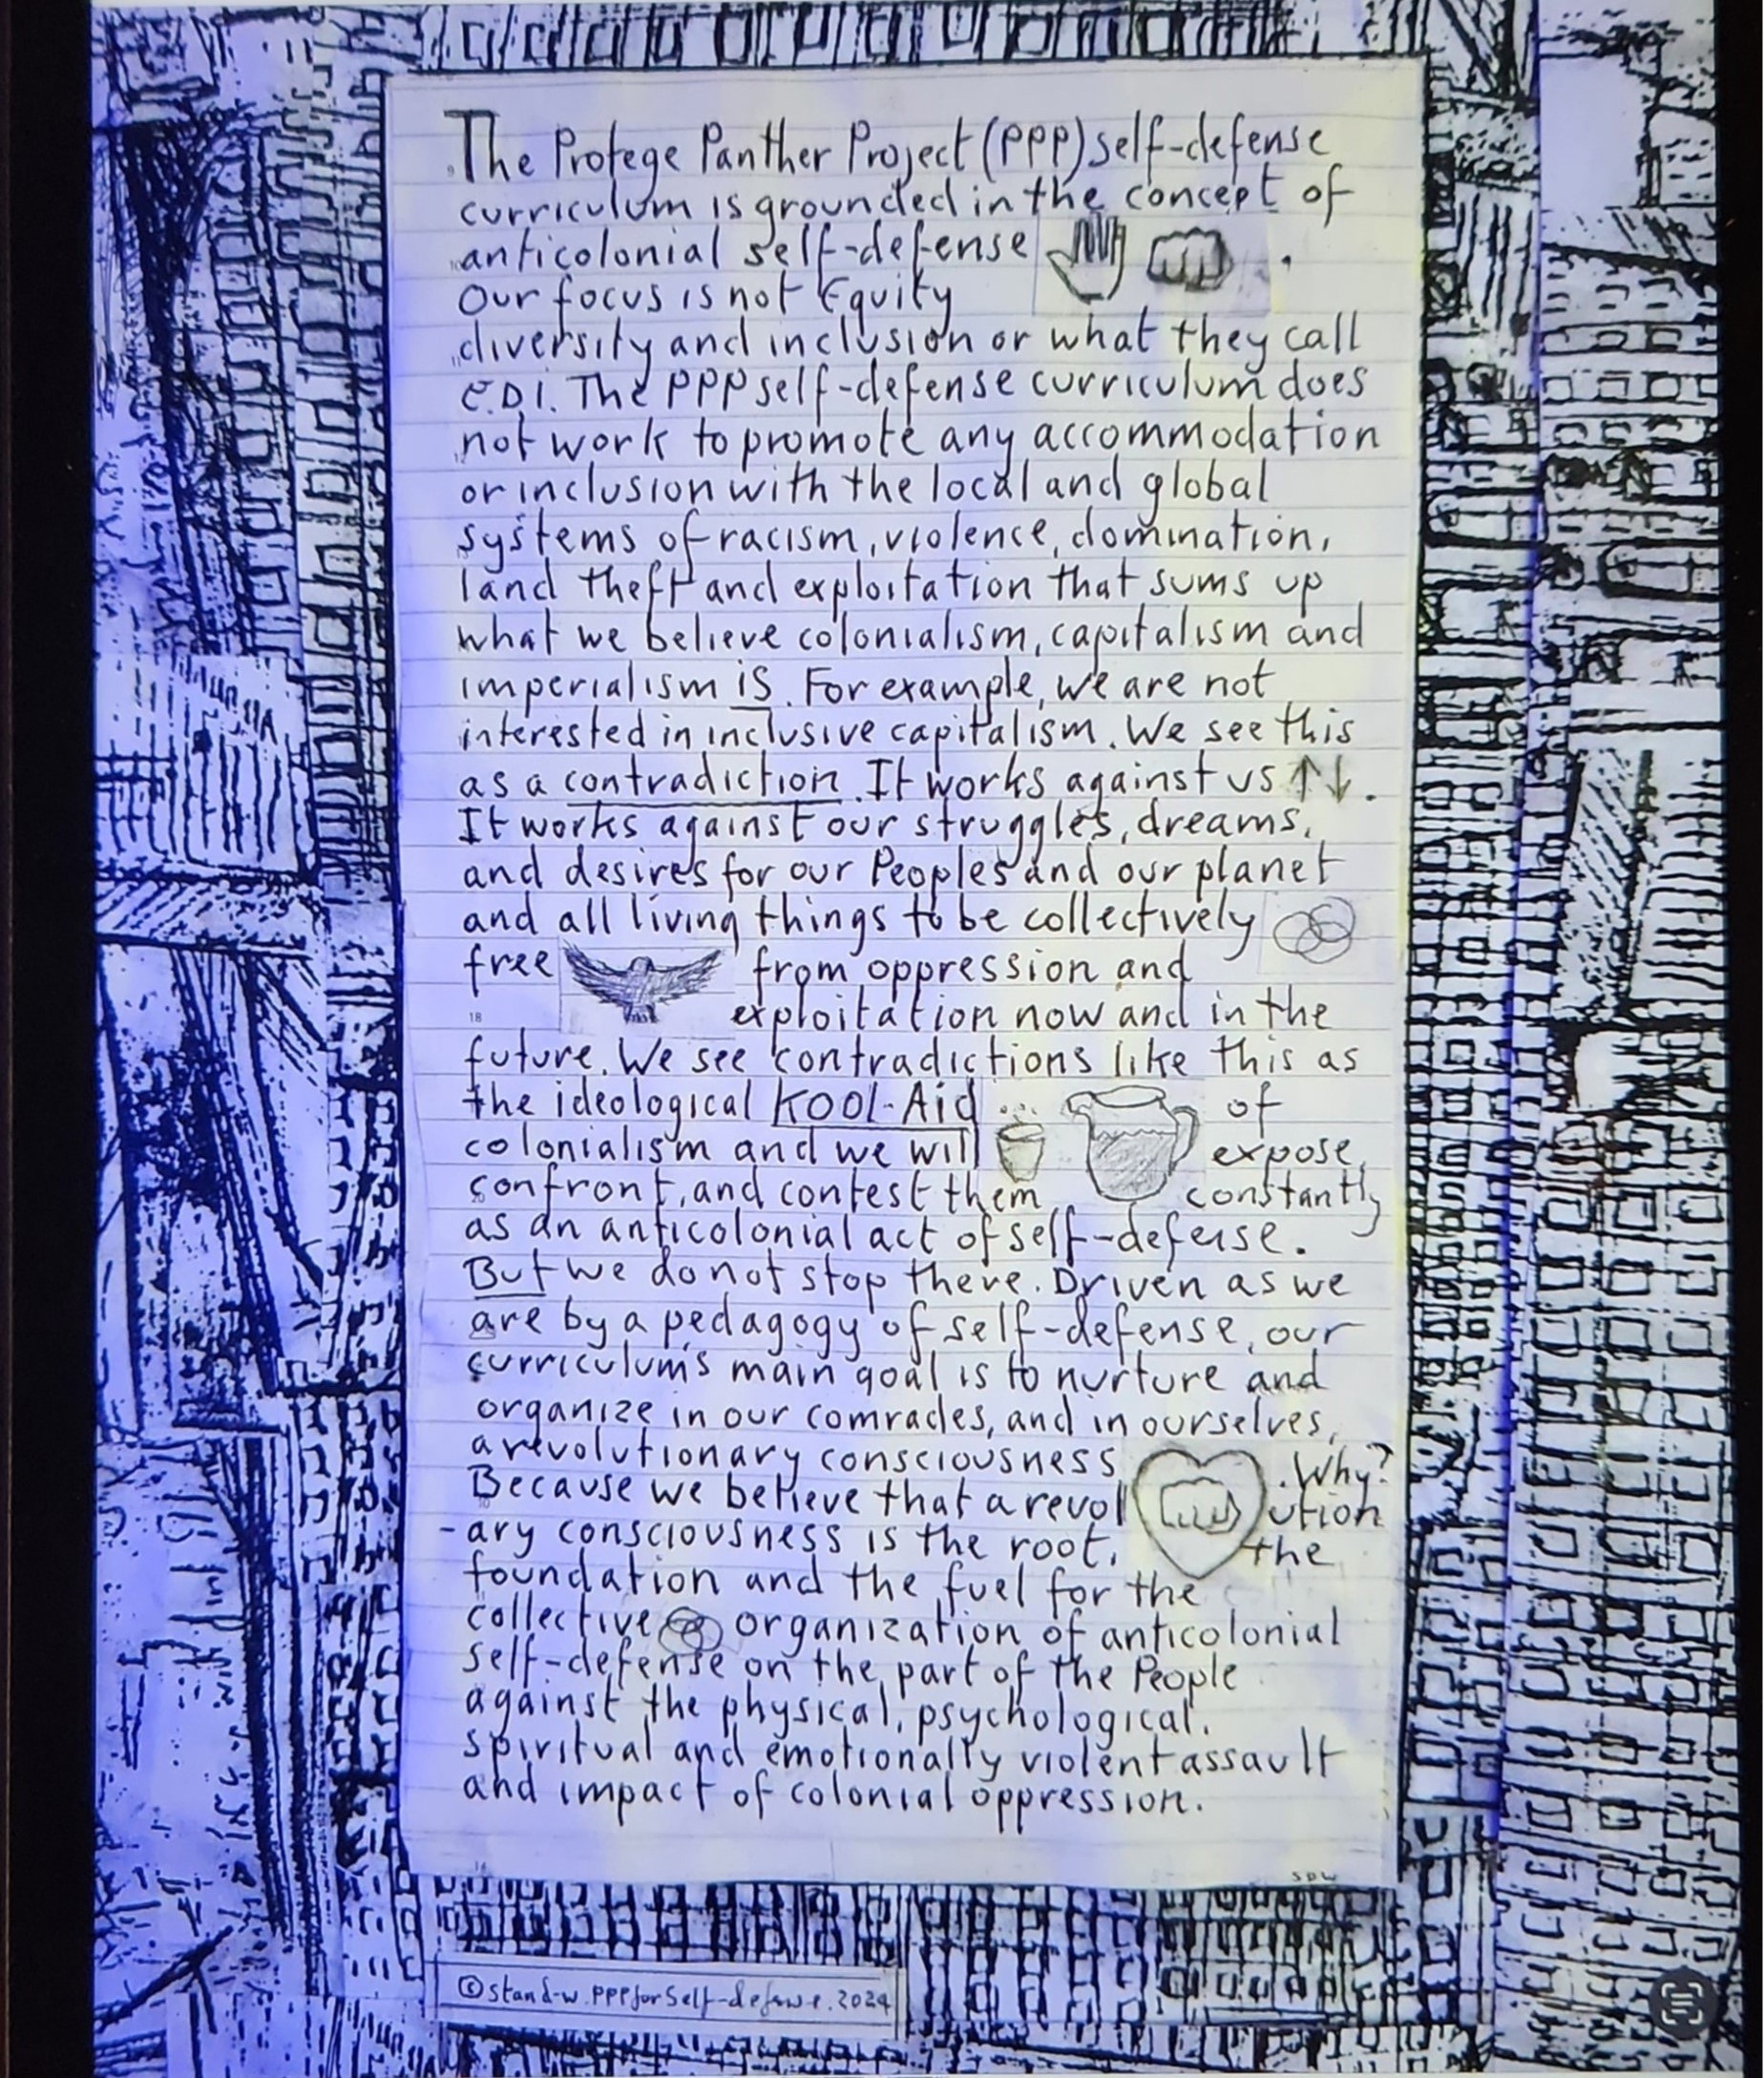 The Protege Panther Project (PPP) self-defense
curriculum is grounded in the concept of
anticolonial self-defense .
Our focus is not Equity
diversity and inclusion or what they call
E.D.I. The PPP self-defense curriculum does
not work to promote any accommodation
or inclusion with the local and global
systems of racism, violence, domination,
land theft and exploitation that sums up
what we believe colonialism, capitalism and
imperialism is. For example, we are not
interested in inclusive capitalism. We see this
as a contradiction. It works against us ↑↓.
It works against our struggles, dreams,
and desires for our Peoples and our planet
and all living things to be collectively
free from oppression and
exploitation now and in the
future. We see contradictions like this as
the ideological KOOl-Aid of
colonialism and we will expose,
confront, and contest them constantly
as an anticolonial act of self-defense.
But we do not stop there. Driven as we
are by a pedagogy of self-defense, our
curriculum's main goal is to nurture and
organize in our comrades, and in ourselves,
a revolutionary consciousness. Why?
Because we believe that a revolution
-ary consciousness is the root, the
foundation and the fuel for the
collective organization of anticolonial
self-defense on the part of the People
against the physical, psychological,
spiritual and emotionally violent assault
and impact of colonial oppression.
SDW
©stand-w.PPPforSelf-defense.2024